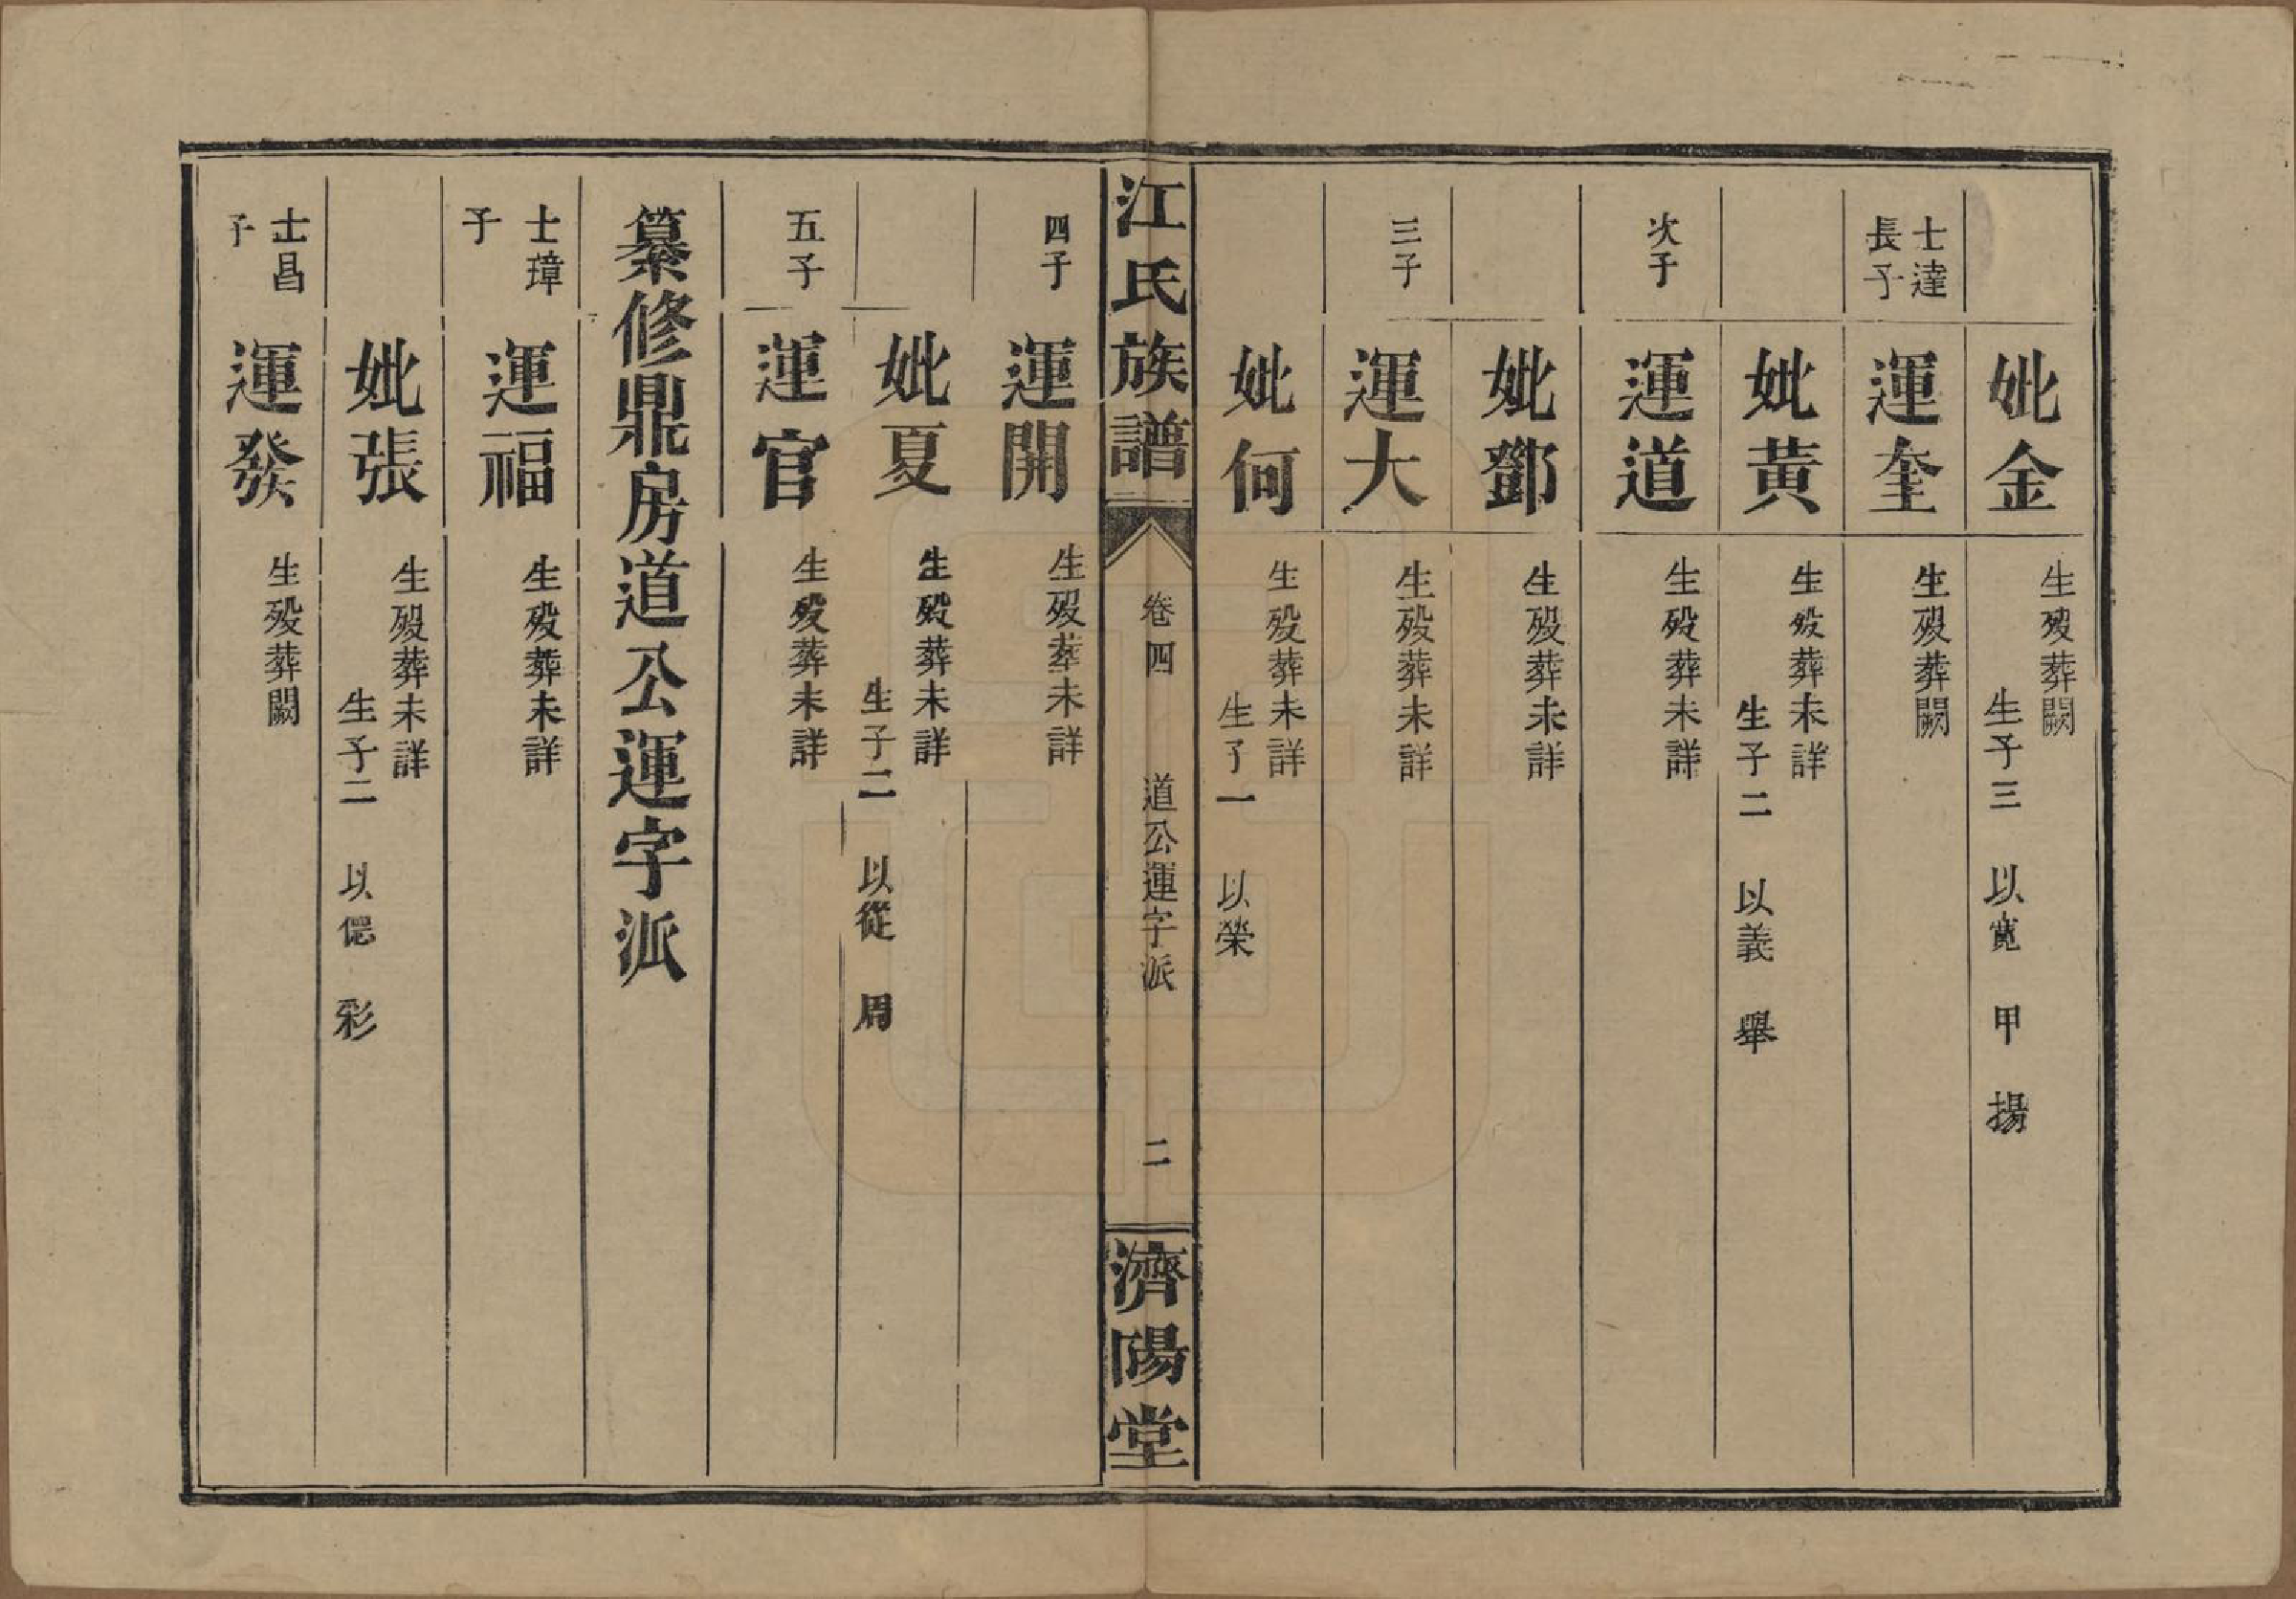 妣金
生歿葬闕
生子三 以寬 甲 揚
士達
長子
運奎
生歿葬闕
妣黃
生歿葬未詳
生子二 以義 舉
次子
運道
生歿葬未詳
妣鄧
生歿葬未詳
三子
運大
生歿葬未詳
妣何
生歿葬未詳
生子一 以榮
江氏族譜
卷四
道公運字派
二
濟陽堂
四子
運開
生歿葬未詳
妣夏
生歿葬未詳
生子二 以從 周
五子
運官
生歿葬未詳
纂修鼎房道公運字派
士璋
子
運福
生歿葬未詳
妣張
生歿葬未詳
生子二 以 彩
士昌
子
運發
生歿葬闕